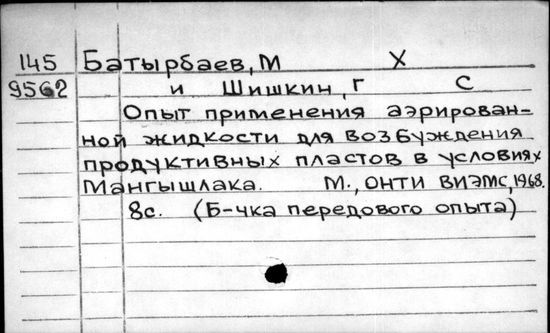 145 Батырбаев, М Х
9562 и Шишкин, Г С
Опыт применения аэрирован-
ной жидкости для возбуждения
продуктивных пластов в условиях
Мангышлака. М., ОНТИ ВИЭМС, 1968.
8с. (Б-чка передового опыта)